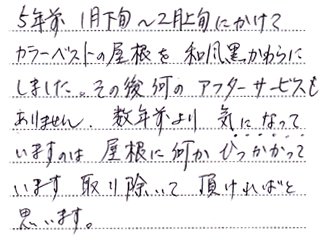 5年前 1月下旬〜2月上旬にかけて
カラーベストの屋根を和風黒かわらに
しました。その後何のアフターサービスも
ありません。数年前より 気になって
いますのは 屋根に何かひっかかって
います 取り除いて 頂ければと
思います。